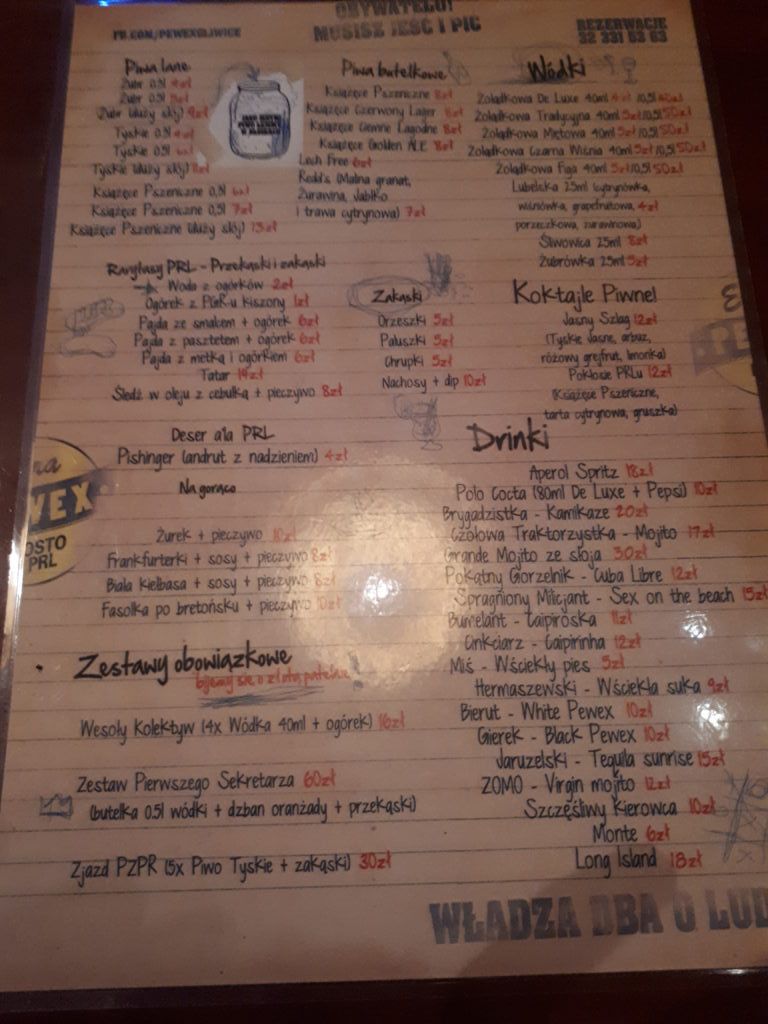 OBYWATELU!
FB.COM/PEWEXGLIWICE
MUSISZ JEŚĆ I PIĆ
REZERWACJE
32 331 53 63
Piwa lane
Żubr 0,3l 4zł
Żubr 0,5l
Żubr (duży słój) 9zł
Tyskie 0,3l 4zł
Tyskie 0,5l 6zł
Tyskie (duży słój) 11zł
Książęce Pszeniczne 0,3l 6zł
Książęce Pszeniczne 0,5l 7zł
Książęce Pszeniczne (duży słój) 13zł
Piwa butelkowe
Książęce Pszeniczne 8zł
Książęce Czerwony Lager 8zł
Książęce Ciemne Łagodne 8zł
Książęce Golden ALE 8zł
Lech Free 6zł
Redd's (Malina granat,
Żurawina, Jabłko
i trawa cytrynowa) 7zł
Wódki
Żołądkowa De Luxe 40ml 4zł /0,5l
Żołądkowa Tradycyjna 40ml 5zł/0,5l 50zł
Żołądkowa Miętowa 40ml 5zł/0,5l 50zł
Żołądkowa Czarna Wiśnia 40ml 5zł/0,5l 50zł
Żołądkowa Figa 40ml 5zł/0,5l 50zł
Lubelska 25ml (cytrynówka,
wiśniówka, grapefrutowa, 4zł
porzeczkowa, żurawinowa)
Śliwowica 25ml 8zł
Żubrówka 25ml 5zł
Rarytasy PRL - Przekąski i zakąski
Woda z ogórków 2zł
Ogórek z PGR-u kiszony 1zł
Pajda ze smalcem + ogórek 6zł
Pajda z pasztetem + ogórek 6zł
Pajda z metką i ogórkiem 6zł
Tatar 14zł
Śledź w oleju z cebulką + pieczywo 8zł
Zakąski
Orzeszki 5zł
Paluszki 5zł
Chrupki 5zł
Nachosy + dip 10zł
Koktajle Piwne!
Jasny Szlag 12zł
(Tyskie Jasne, arbuz,
różowy grejfrut, limonka)
Pokłosie PRLu 12zł
(Książęce Pszeniczne,
tarta cytrynowa, gruszka)
Deser a'la PRL
Pishinger (andrut z nadzieniem) 4zł
Na gorąco
Żurek + pieczywo 10zł
Frankfurterki + sosy + pieczywo 8zł
Biała Kiełbasa + sosy + pieczywo 8zł
Fasolka po bretońsku + pieczywo 10zł
Drinki
Aperol Spritz 18zł
Polo Cocta (80ml De Luxe + Pepsi) 10zł
Brygadzistka - Kamikaze 20zł
Czołowa Traktorzystka - Mojito 17zł
Grande Mojito ze słoja 30zł
Pokątny Gorzelnik - Cuba Libre 12zł
Spragniony Milicjant - Sex on the beach 15zł
Bumelant - Caipiroska 11zł
Cinkciarz - Caipirinha 12zł
Miś - Wściekły pies 5zł
Hermaszewski - Wściekła suka 9zł
Bierut - White Pewex 10zł
Gierek - Black Pewex 10zł
Jaruzelski - Tequila sunrise 15zł
ZOMO - Virgin mojito 12zł
Szczęśliwy Kierowca 10zł
Monte 6zł
Long Island 18zł
Zestawy obowiązkowe
bijemy się o złotą patelnię
Wesoły Kolektyw (4x Wódka 40ml + ogórek) 16zł
Zestaw Pierwszego Sekretarza 60zł
(butelka 0.5l wódki + dzban oranżady + przekąski)
Zjazd PZPR (5x Piwo Tyskie + zakąski) 30zł
WEX
OSTO
PRL
WŁADZA DBA O LUD